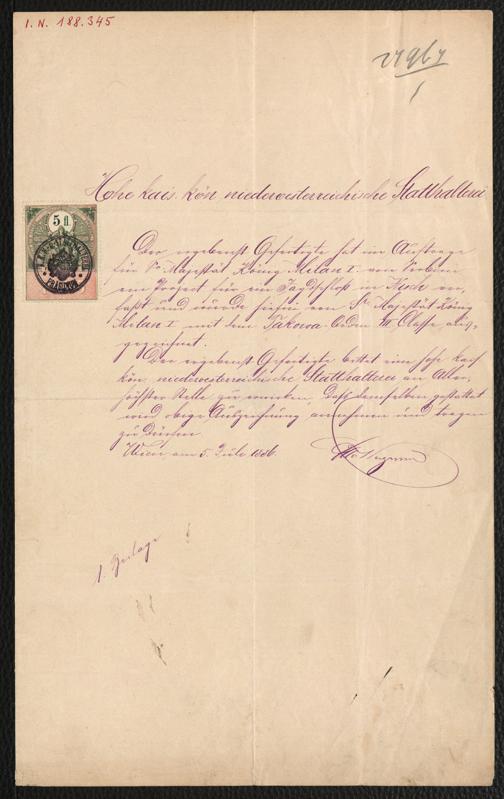 I. N. 188.345
Hohe kais. kön niederoesterreichische Statthalterei
5 fl
Der ergebenst Gefertigte hat im Auftrage
für Sr Majestät König Milan I. von Serbien
ein Project für ein Jagdschloß in Nisch ver,
faßt und wurde hiefür von Sr Majestät König
Milan I mit dem Takowa-Orden III Classe aus,
gezeichnet.
Der ergebenst Gefertigte bittet eine hohe kais
kön niederoesterreichische Statthalterei an Aller,
höchster Stelle zu erwirken, daß demselben gestattet
wird obige Auszeichnung annehmen und tragen
zu dürfen.
Wien am 5. Juli 1886
Otto Wagner
1. Beilage